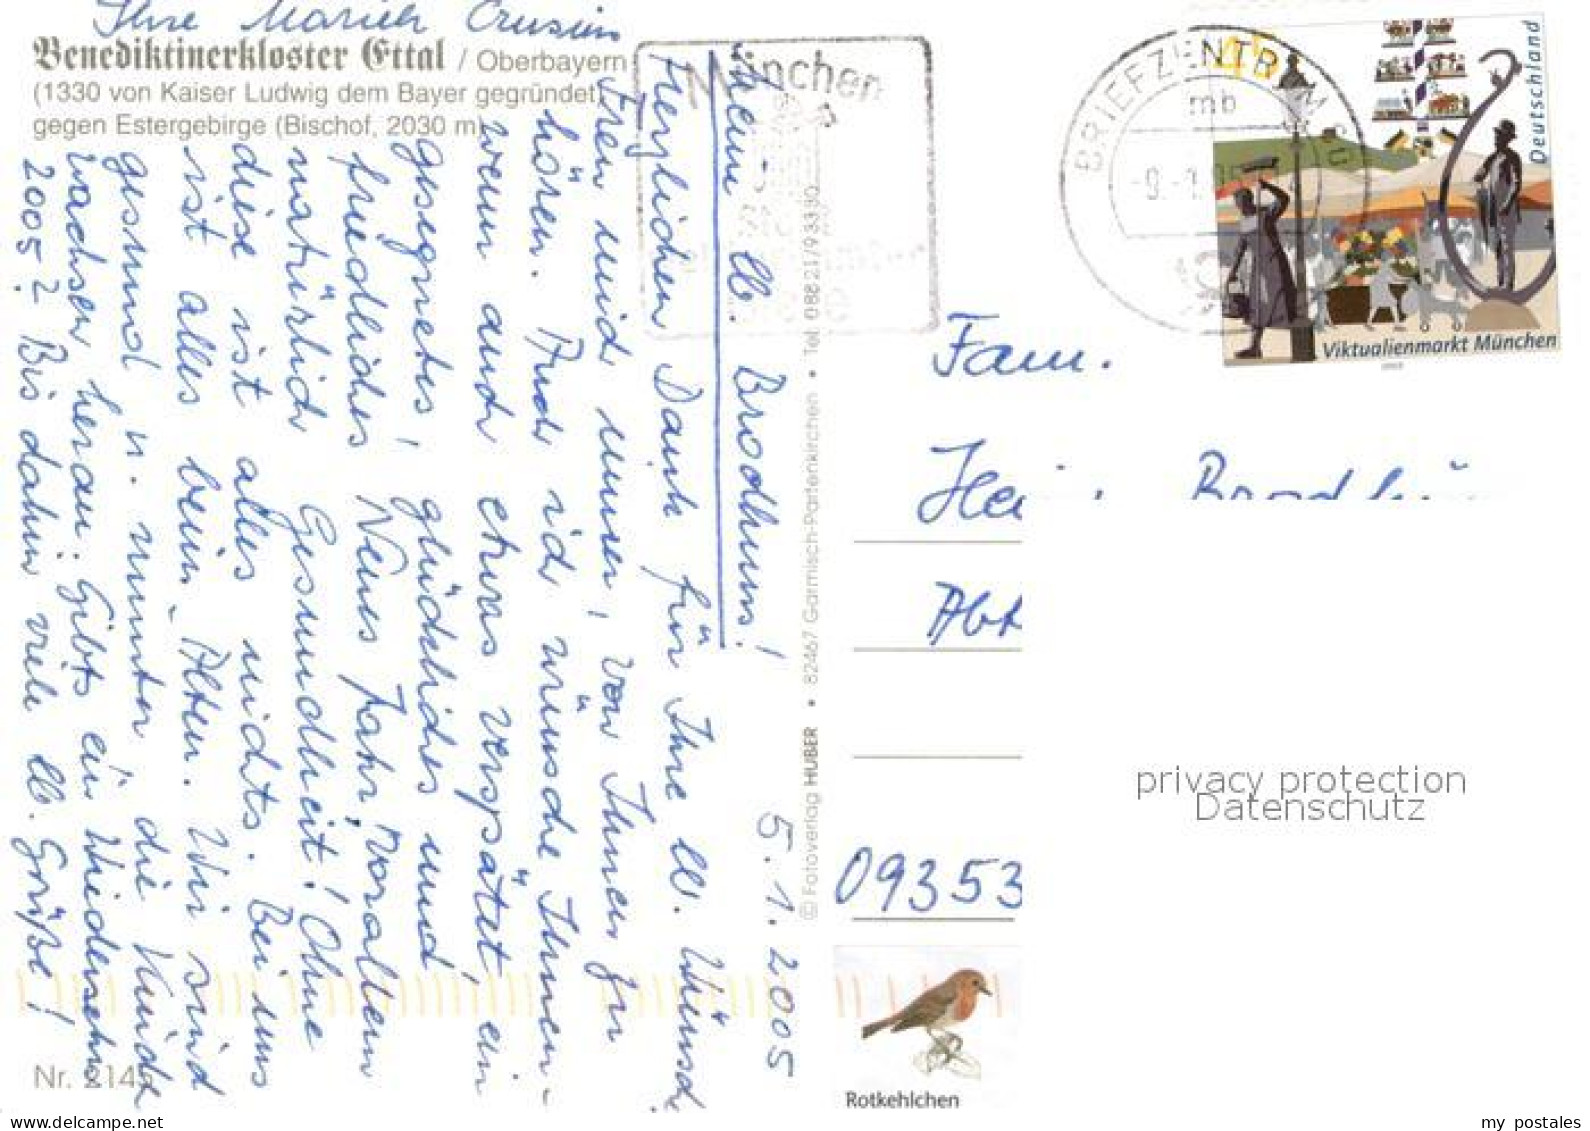 Benediktinerkloster Ettal / Oberbayern
(1330 von Kaiser Ludwig dem Bayer gegründet)
gegen Estergebirge (Bischof, 2030 m)
5.1.2005
Meine lb. Brodhuns!
Herzlichen Dank für Ihre lb. Wünsche
freu mich immer, von Ihnen zu
hören. Auch ich wünsche Ihnen -
wenn auch etwas verspätet ein
gesegnetes, glückliches und
friedliches Neues Jahr, vor allem
natürlich Gesundheit! Ohne
diese ist alles nichts. Bei uns
ist alles beim Alten. Wir sind
gesund u. munter, die Kinder
wachsen heran. Gibts ein Wiedersehn
2005? Bis dahin viele lb. Grüße!
Ihre
Nr. 214
© Fotoverlag HUBER • 82467 Garmisch-Partenkirchen • Tel. 08821/93330
München
BRIEFZENTRUM
mb
45
Deutschland
Viktualienmarkt München
Fam.
09353
privacy protection
Datenschutz
Rotkehlchen
www.delcampe.net
my_postales